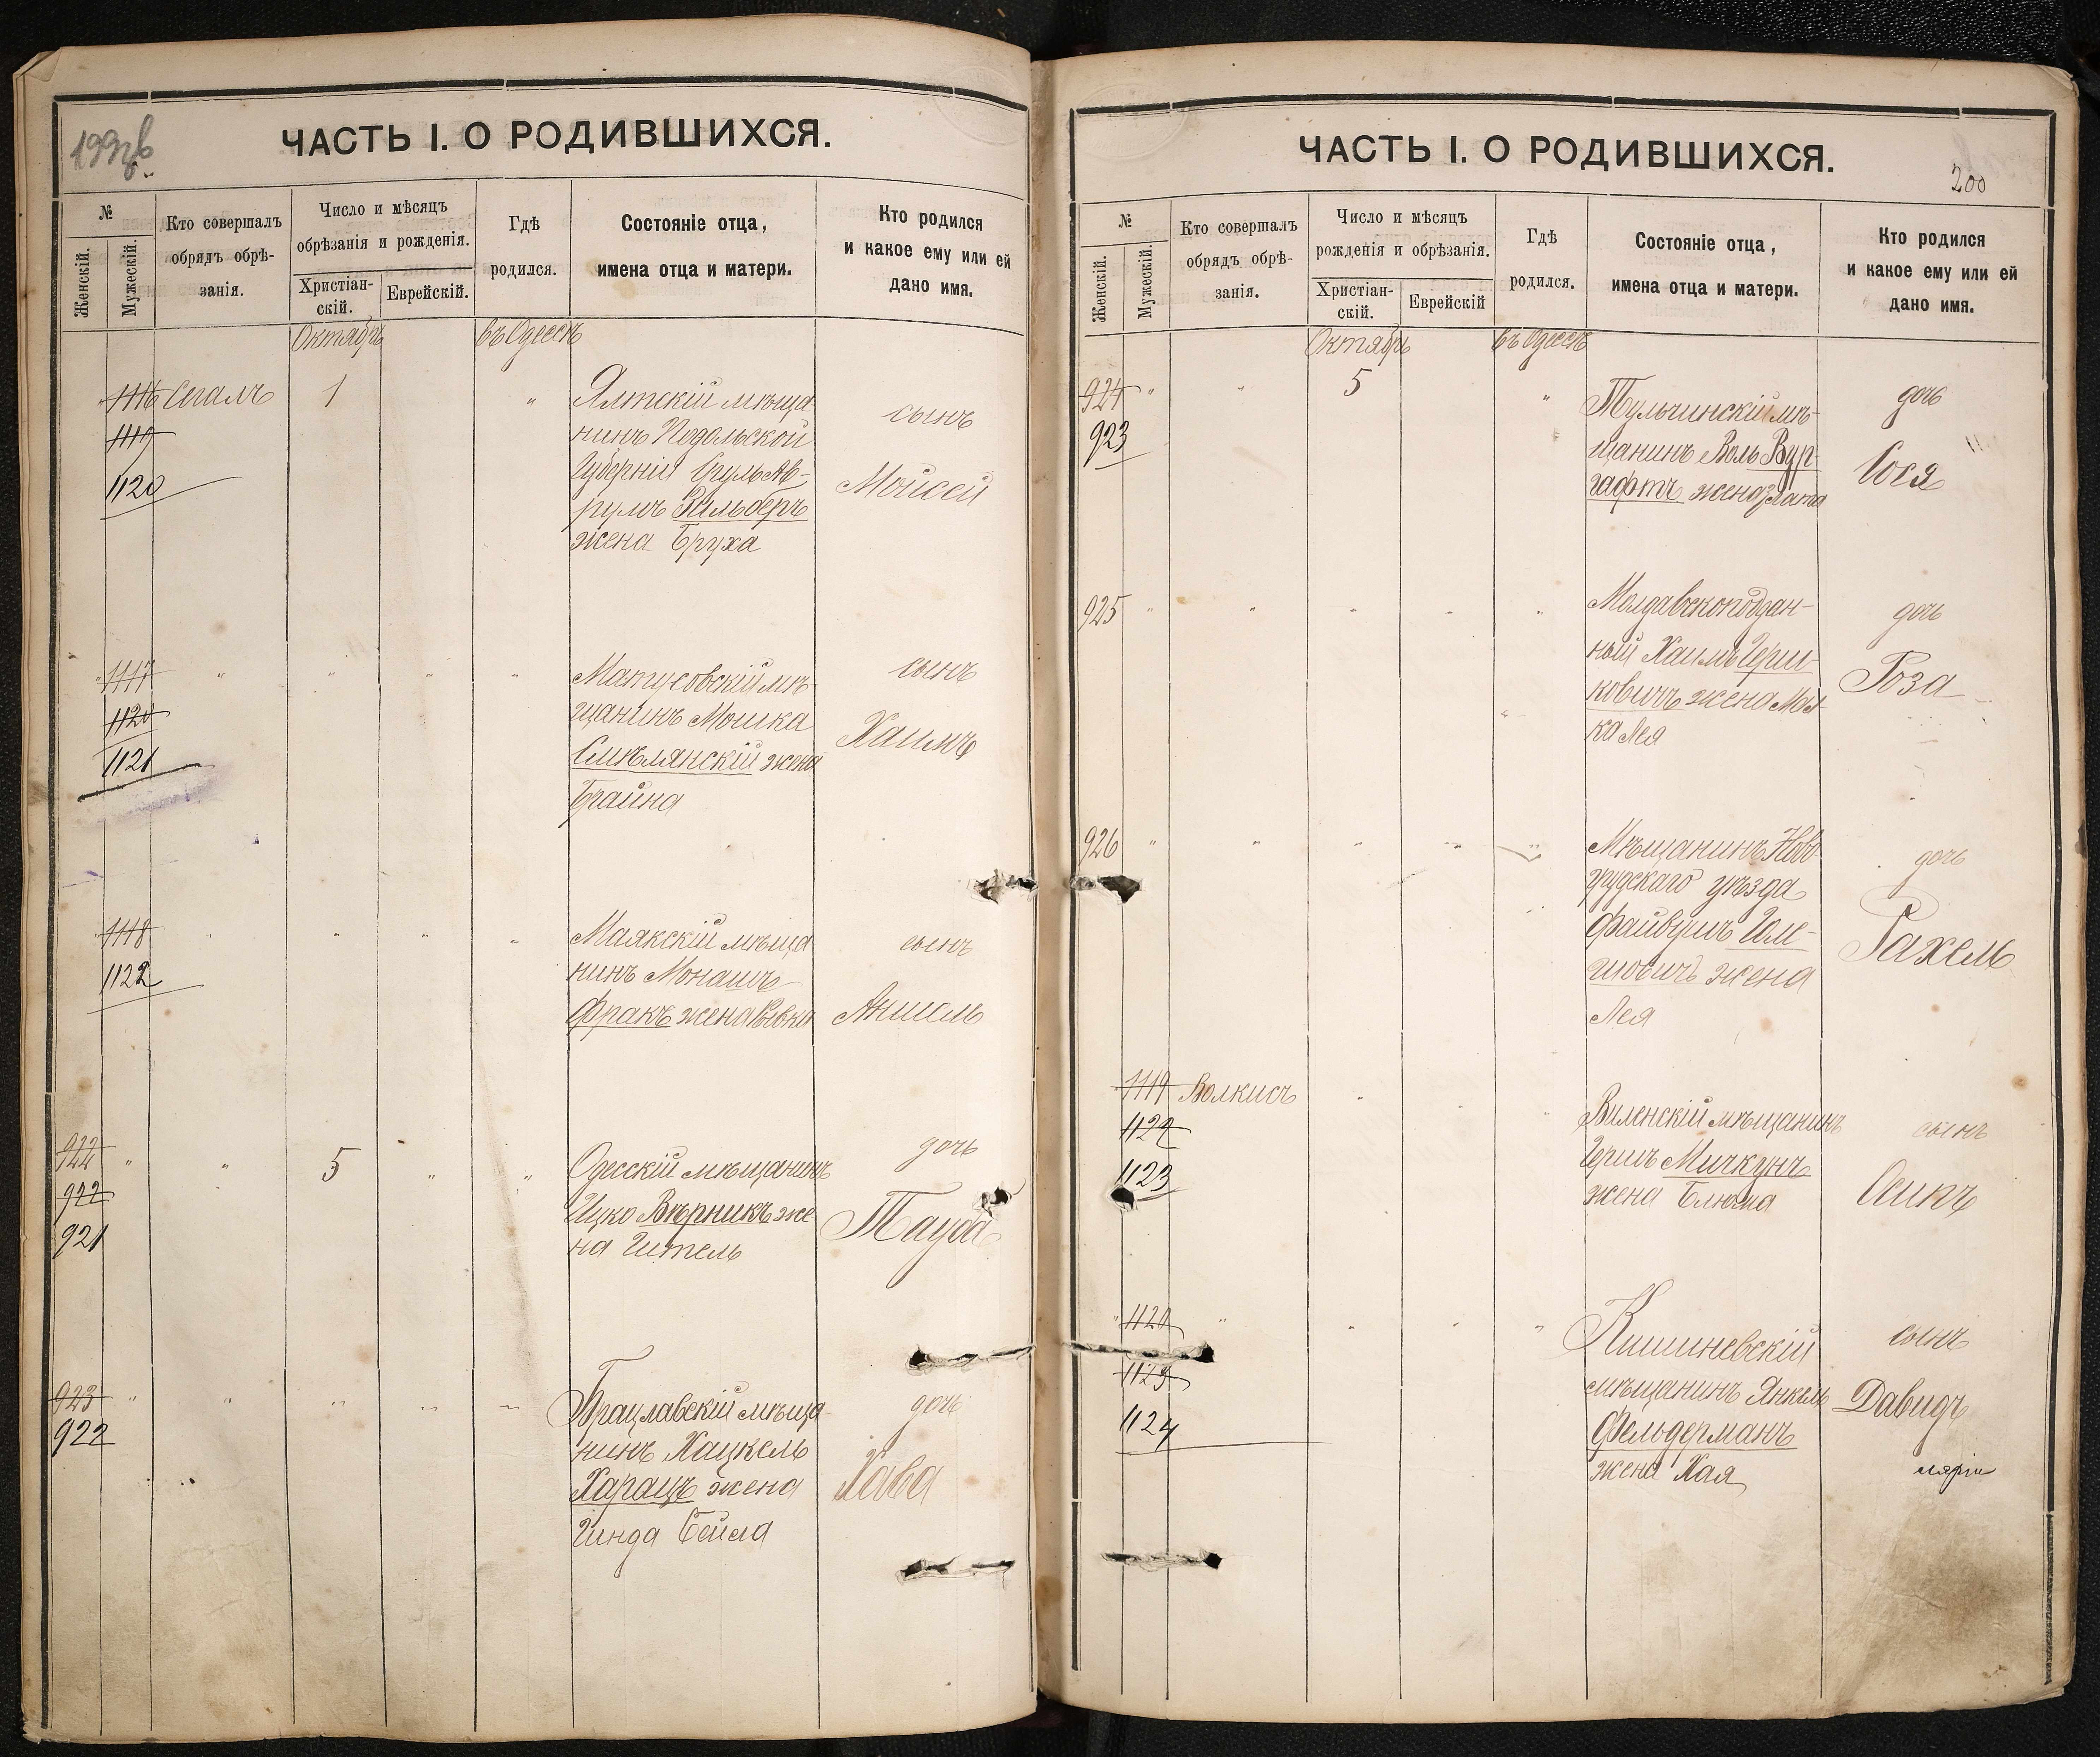 ЧАСТЬ I. О РОДИВШИХСЯ.
№
Женскій.
Мужескій.
Кто совершалъ
обрядъ обрѣ-
занія.
Число и мѣсяцъ
обрѣзанія и рожденія.
Христіан-
скій.
Еврейскій.
Гдѣ
родился.
Состояніе отца,
имена отца и матери.
Кто родился
и какое ему или ей
дано имя.
Октябрь
въ Одессѣ
1116 Сегалъ 1 "
1119
1120
Ялтскій мѣща
нинъ Подольской
Губерніи Сруль Ав-
румъ Зильберъ
жена Бруха
сынъ
Мойсей
1117 " " " "
1120
1121
Матусовскій мѣ
щанинъ Мошка
Смѣлянскій жена
Брайна
сынъ
Хаимъ
1118 " " " "
1122
Маякскій мѣща
нинъ Монашъ
Фракъ жена Ривка
сынъ
Аншель
922 " " 5 " "
922
921
Одесскій мѣщанинъ
Ицко Вѣрникъ же
на Гитель
дочь
Тауба
923 " " " " "
922
Брацлавскій мѣща-
нинъ Хацкель
Харацъ жена
Гинда Бейла
дочь
Хава
ЧАСТЬ I. О РОДИВШИХСЯ.
200
№
Женскій.
Мужескій.
Кто совершалъ
обрядъ обрѣ-
занія.
Число и мѣсяцъ
рожденія и обрѣзанія.
Христіан-
скій.
Еврейскій
Гдѣ
родился.
Состояніе отца,
имена отца и матери.
Кто родился
и какое ему или ей
дано имя.
Октябрь
въ Одессѣ
924 " " 5 "
923
Тульчинскій мѣ-
щанинъ Воль Вур-
гафтъ жена Злата
дочь
Сося
925 " " " " "
Молдавскоподдан-
ный Хаимъ Герш-
ковичъ жена Мал
ка Лея
дочь
Роза
926 " " " " "
Мѣщанинъ Ново
грудскаго уѣзда
Файвушъ
жена
Лея
дочь
Рахель
1119 Волкисъ " " "
1122
1123
Виленскій мѣщанинъ
Гершъ Мичкунъ
жена Блюма
сынъ
Осипъ
1120 " " " "
1123
1124
Кишиневскій
мѣщанинъ Янкель
Фельдерманъ
жена Хая
сынъ
Давидъ